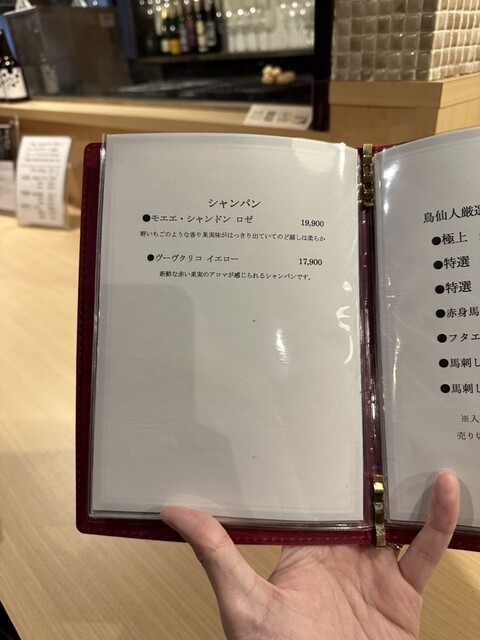 シャンパン
●モエエ・シャンドン ロゼ 19,900
野いちごのような香り果実味がはっきり出ていてのど越しは柔らか
●ヴーヴクリコ イエロー 17,900
新鮮な赤い果実のアロマが感じられるシャンパンです。
鳥仙人厳選
●極上
●特選
●特選
●赤身馬
●フタエ
●馬刺し
●馬刺し
※入
売り切